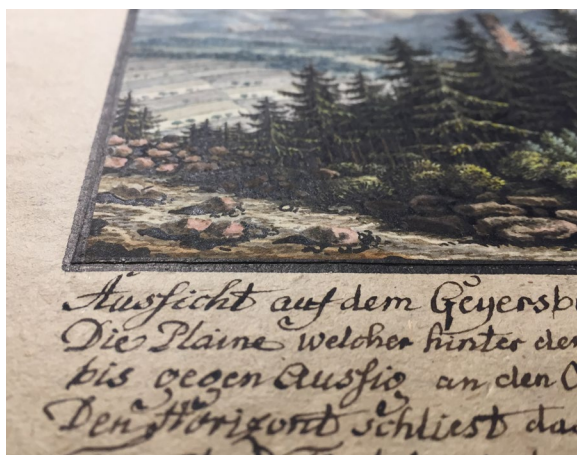 Aussicht auf dem Geyersb
Die Plaine welcher hinter der
bis gegen Aussig an den
Den Horizont schliest das